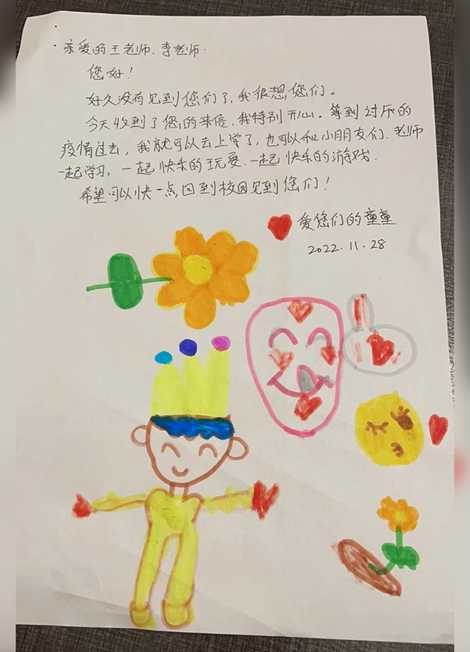 亲爱的王老师、李老师：
您好！
好久没有见到您们了，我很想您们。
今天收到了您的来信，我特别开心。等到讨厌的
疫情过去，我就可以去上学了，也可以和小朋友们、老师
一起学习，一起快乐的玩耍、一起快乐的游戏。
希望可以快一点回到校园见到您们！
爱您们的童童
2022.11.28